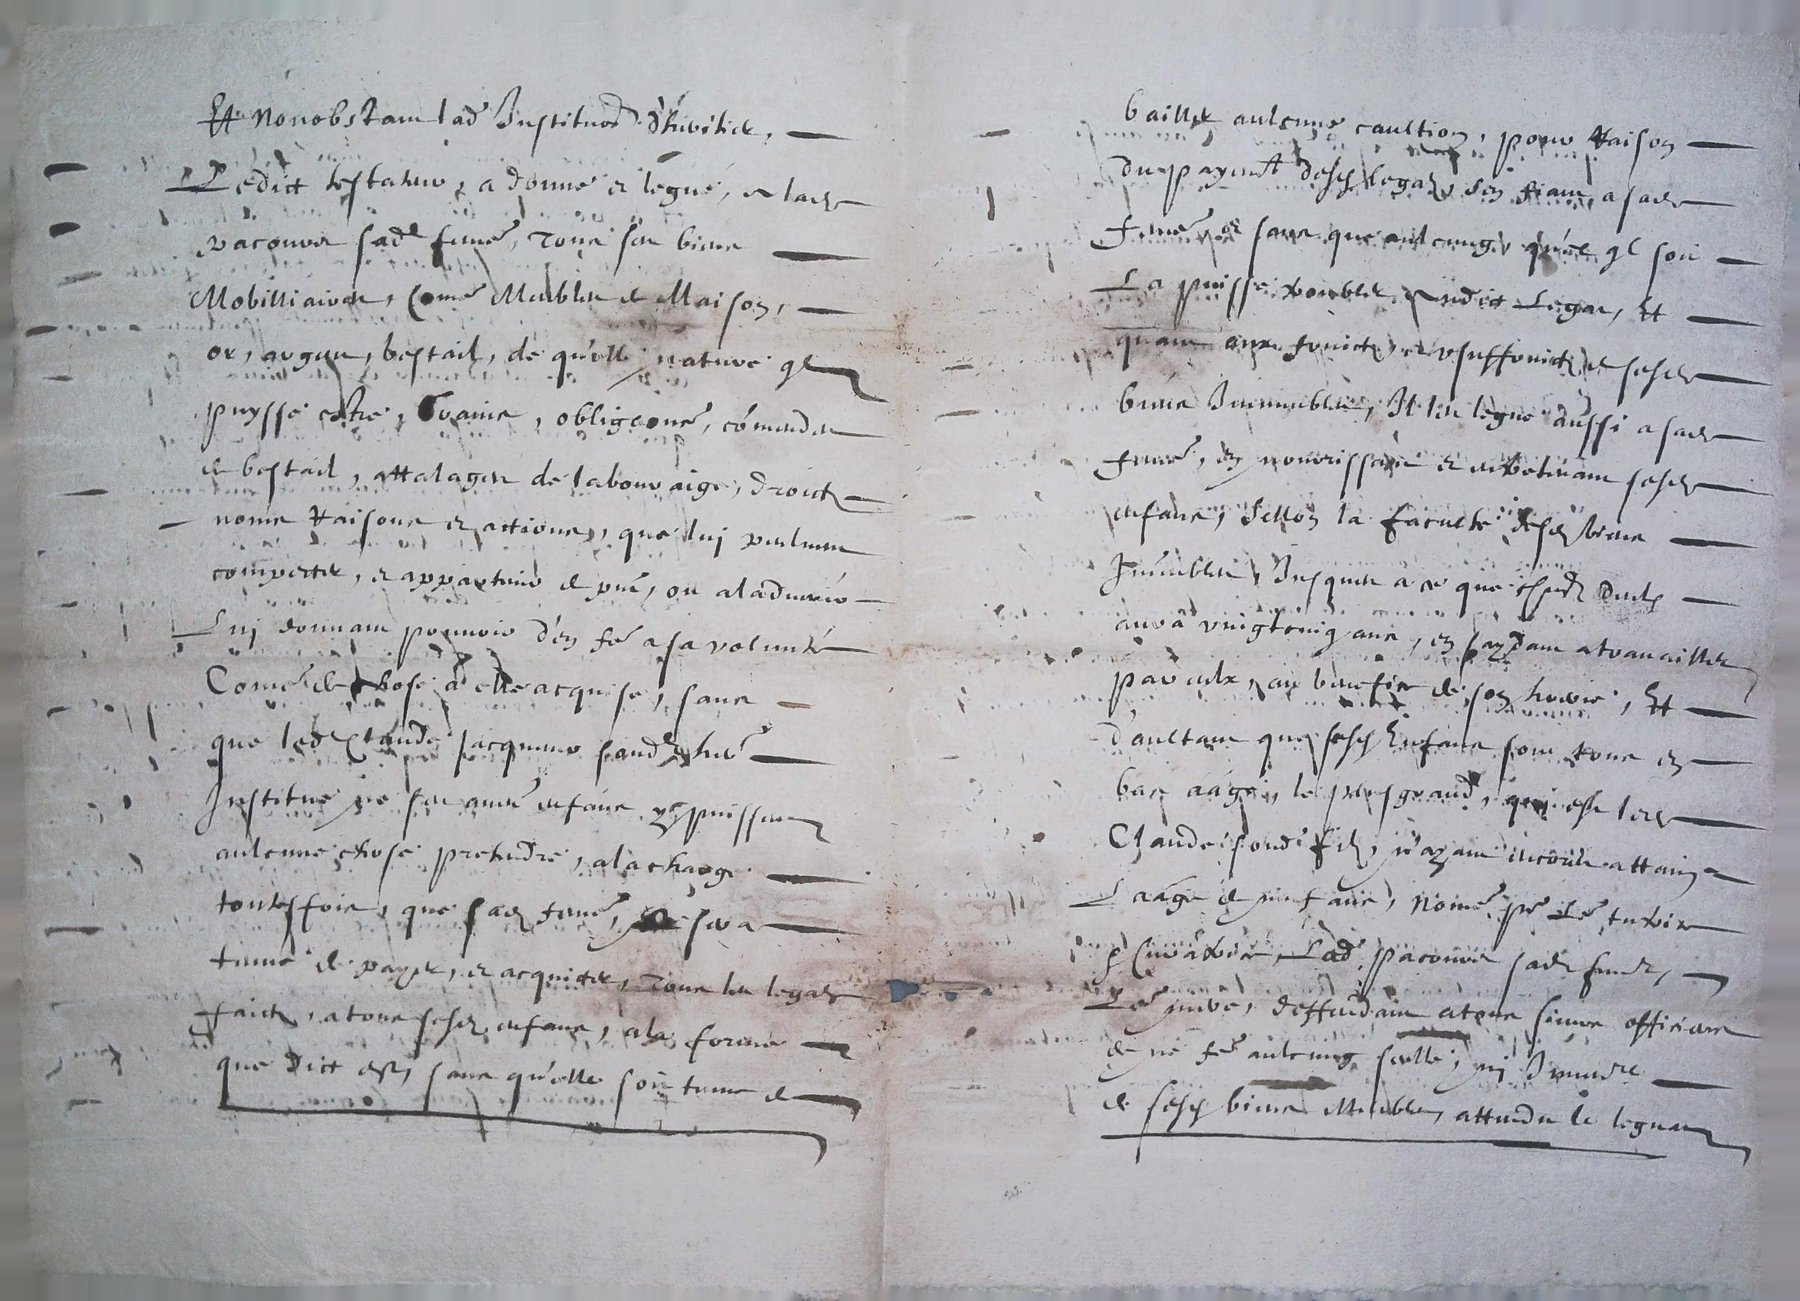 Et nonobstant lad Instituon d'heritier,
Ledict testateur a donné et legué, a lade
pacourer sad feme, Tous ses biens
Mobilliaires, Come Meubles de Maison,
or, argen, bestail, de quelle nature ql
puysse estre, Graine, obligeons, comendes
de bestail, attalages de labouraige, droictz
noms Raisons et actions, que luj peulvent
competer, et appartenir de pnt, ou aladvenir
Luj donnant pouvoir d'en fe a sa volunté
Come de chose a elle acquise, sans
que led Claude Jacquemo sond her
Institué ne ses autres enfans y puissent
aulcune chose pretendre, alacharge
toutesfois, que sad feme, sera
tenue de payer, et acquicter, Tous les legatz
faictz, a tous sesd enfans, ala forme
que dict est, sans qu'elle soit tenue de
bailler aulcune caultion, pour Raison
du payemt desd legatz, s'en fiant a sade
feme, et sans que aulcung, quel ql soit
La puisse troubler audict Legat, Et
quant aux fruictz, et usuffruictz de sesd
biens Immeubles, Il les legue aussi a sade
feme, en nourrissant et entretenant sesd
enfans, sellon la faculté desd biens
Immeubles, Jusques a ce que led Claude
aura vingtcinq ans, en aydant a travailler
par eulx, au benefice de son hoirie, Et
d'aultant que sesd Enfans sont tous en
bas aage, le plus grand, qui est led
Claude sondt filz, n'ayant encoure attain
L'aage de neuf ans, nomme pr Le tutrix
et Curatrix, Lad pacourer sade feme,
Le Juré, deffendant a tous sieurs officiers
de ne fe aulcung scellé, nj Inventre
de sesd biens Meubles, attendu le leguat